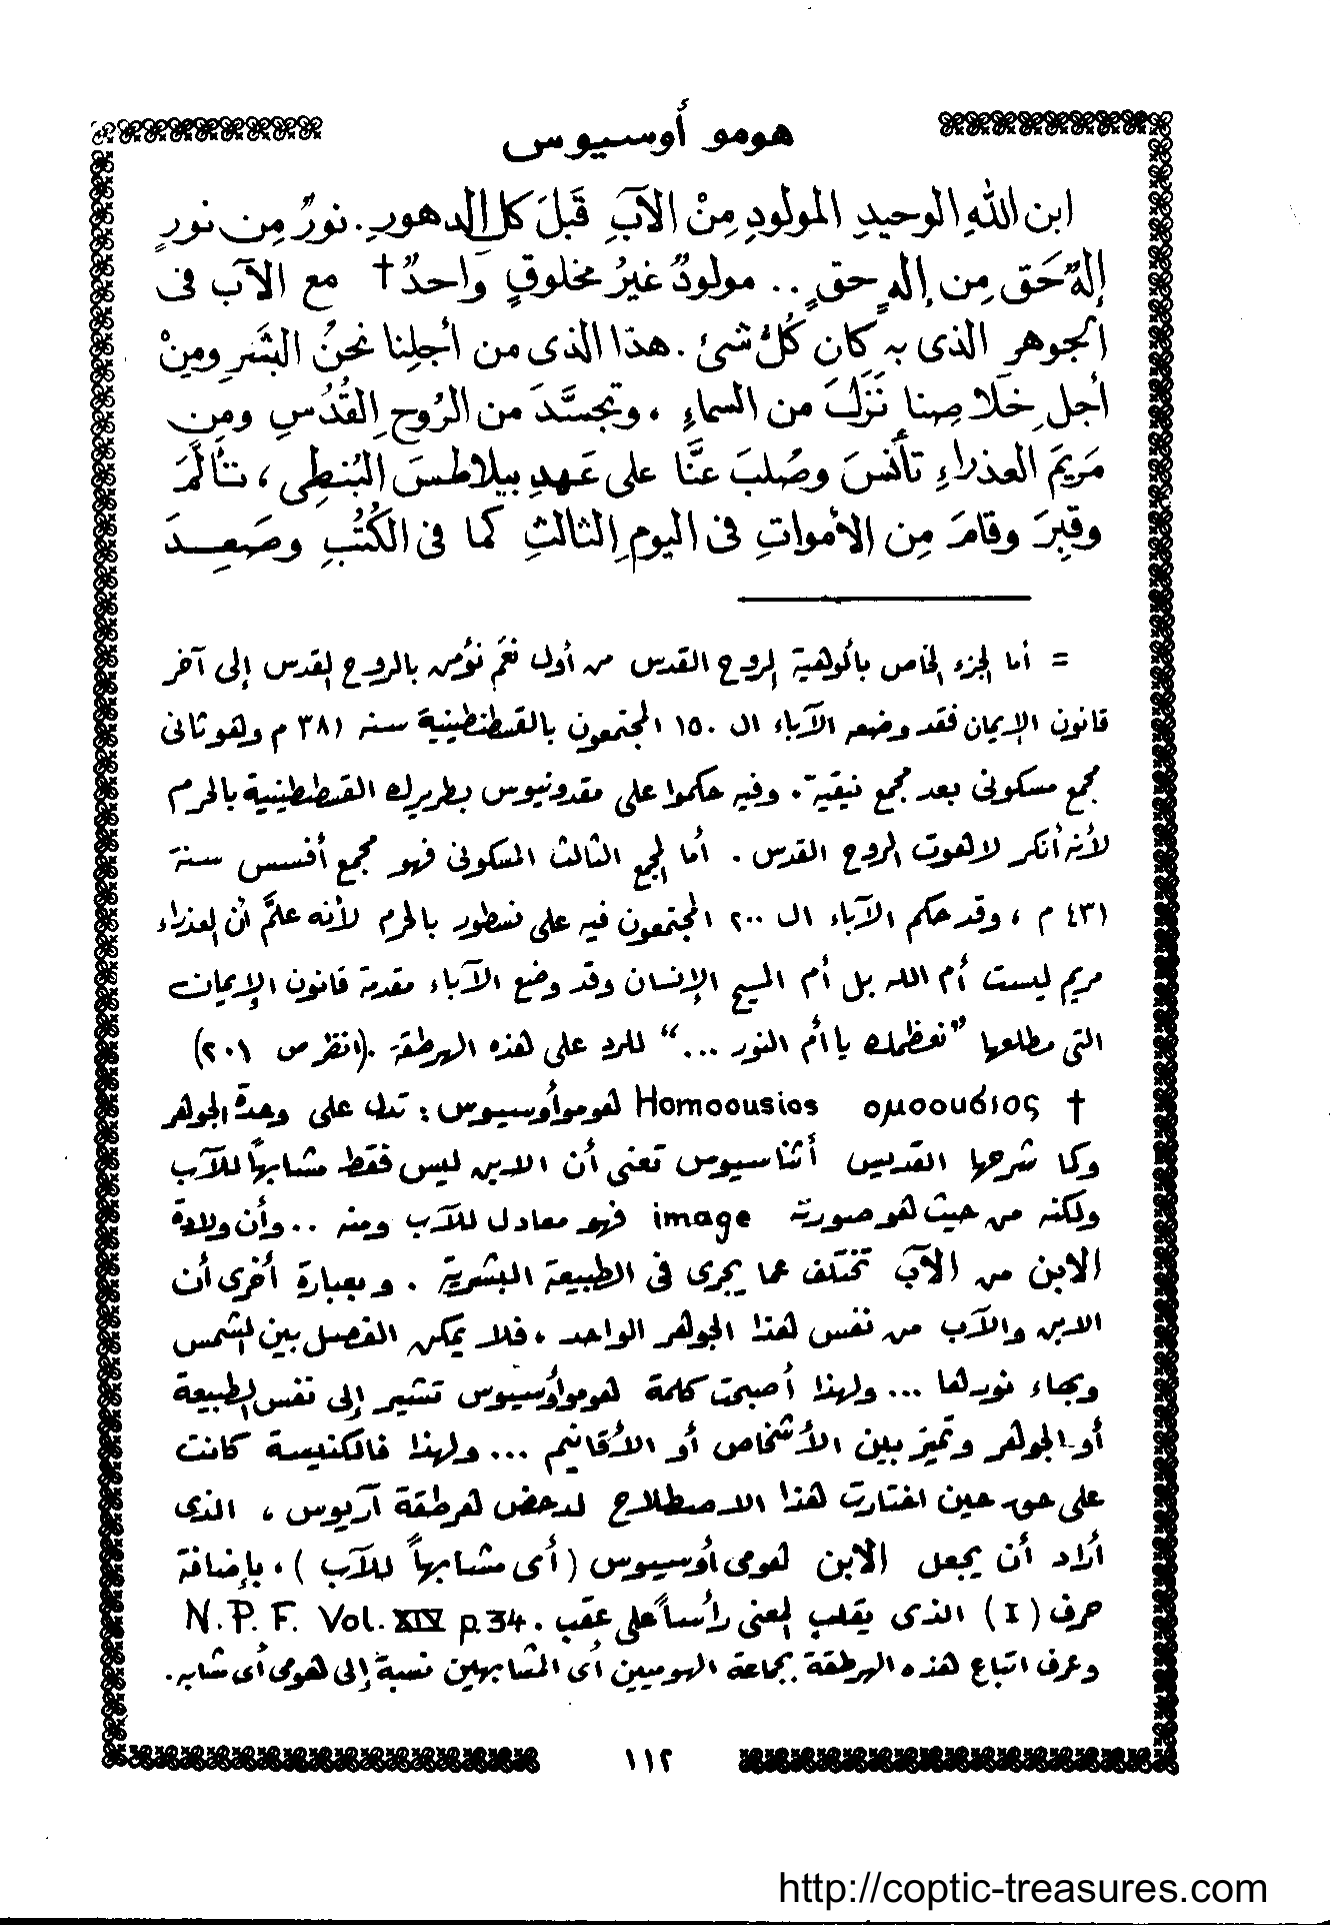 هومو أوسيوس
ابن اللهِ الوحيدِ المولودِ مِنْ الآبِ قَبلَ كل الدهورِ. نورٌ مِن نورٍ
إلهٌ حَق مِن إلهٍ حقٍ .. مولودٌ غيرُ مخلوقٍ وَاحدٌ † مع الآب فى
الجوهر الذى بهِ كان كُلُّ شئ . هذا الذى من أجلِنا نحنُ البشَرِ ومِنْ
أجلِ خَلاصِنا نَزَلَ من السماءِ ، وتجسَّدَ من الرُوحِ القُدُسِ ومِن
مَريمَ العذراءِ تأنسَ وصُلبَ عنَّا على عَهدِ بيلاطسَ البُنطِى ، تألَّمَ
وقبِرَ وقامَ مِن الأمواتِ فى اليومِ الثالثِ كما فى الكُتُبِ وصَعِدَ
= أما الجزء الخاص بألوهية الروح القدس من أول نعَم نؤمن بالروح القدس إلى آخر
قانون الإيمان فقد وضعه الآباء ال ١٥٠ المجتمعون بالقسطنطينية سنه ٣٨١ م وهو ثانى
مجمع مسكونى بعد مجمع نيقية . وفيه حكموا على مقدونيوس بطريرك القسطنطينية بالحرم
لأنه أنكر لاهوت الروح القدس . أما المجمع الثالث المسكونى فهو مجمع أفسس سنة
٤٣١ م ، وقد حكم الآباء ال ٢٠٠ المجتمعون فيه على نسطور بالحرم لأنه علَّم أن العذراء
مريم ليست أم الله بل أم المسيح الإنسان وقد وضع الآباء مقدمة قانون الإيمان
التى مطلعها ”نعظمك يا أم النور ...“ للرد على هذه الهرطقة .(انظر ص ٢٠١)
† ομοουσιος Homoousios هومو أوسيوس : تدل على وحدة الجوهر
وكما شرحها القديس أثناسيوس تعنى أن الابن ليس فقط مشابهاً للآب
ولكنه من حيث هو صورته image فهو معادل للآب ومنه .. وأن ولادة
الابن من الآب تختلف عما يجرى فى الطبيعة البشرية . وبعبارة أخرى أن
الابن والآب من نفس هذا الجوهر الواحد ، فلا يمكن الفصل بين الشمس
وبهاء نورها ... ولهذا أصبحت كلمة هومو أوسيوس تشير إلى نفس الطبيعة
أو الجوهر وتميز بين الأشخاص أو الأقانيم ... ولهذا فالكنيسة كانت
على حق حين اختارت هذا الاصطلاح لدحض هرطقة آريوس ، الذى
أراد أن يجعل الابن هومى أوسيوس (أى مشابهاً للآب ) ، بإضافة
حرف ( I ) الذى يقلب المعنى رأساً على عقِب . N.P.F. Vol. XIV p.34
وعرف اتباع هذه الهرطقة بجماعة الهوميين أى المشابهين نسبة إلى هومى أى شابه .
١١٢
http://coptic-treasures.com